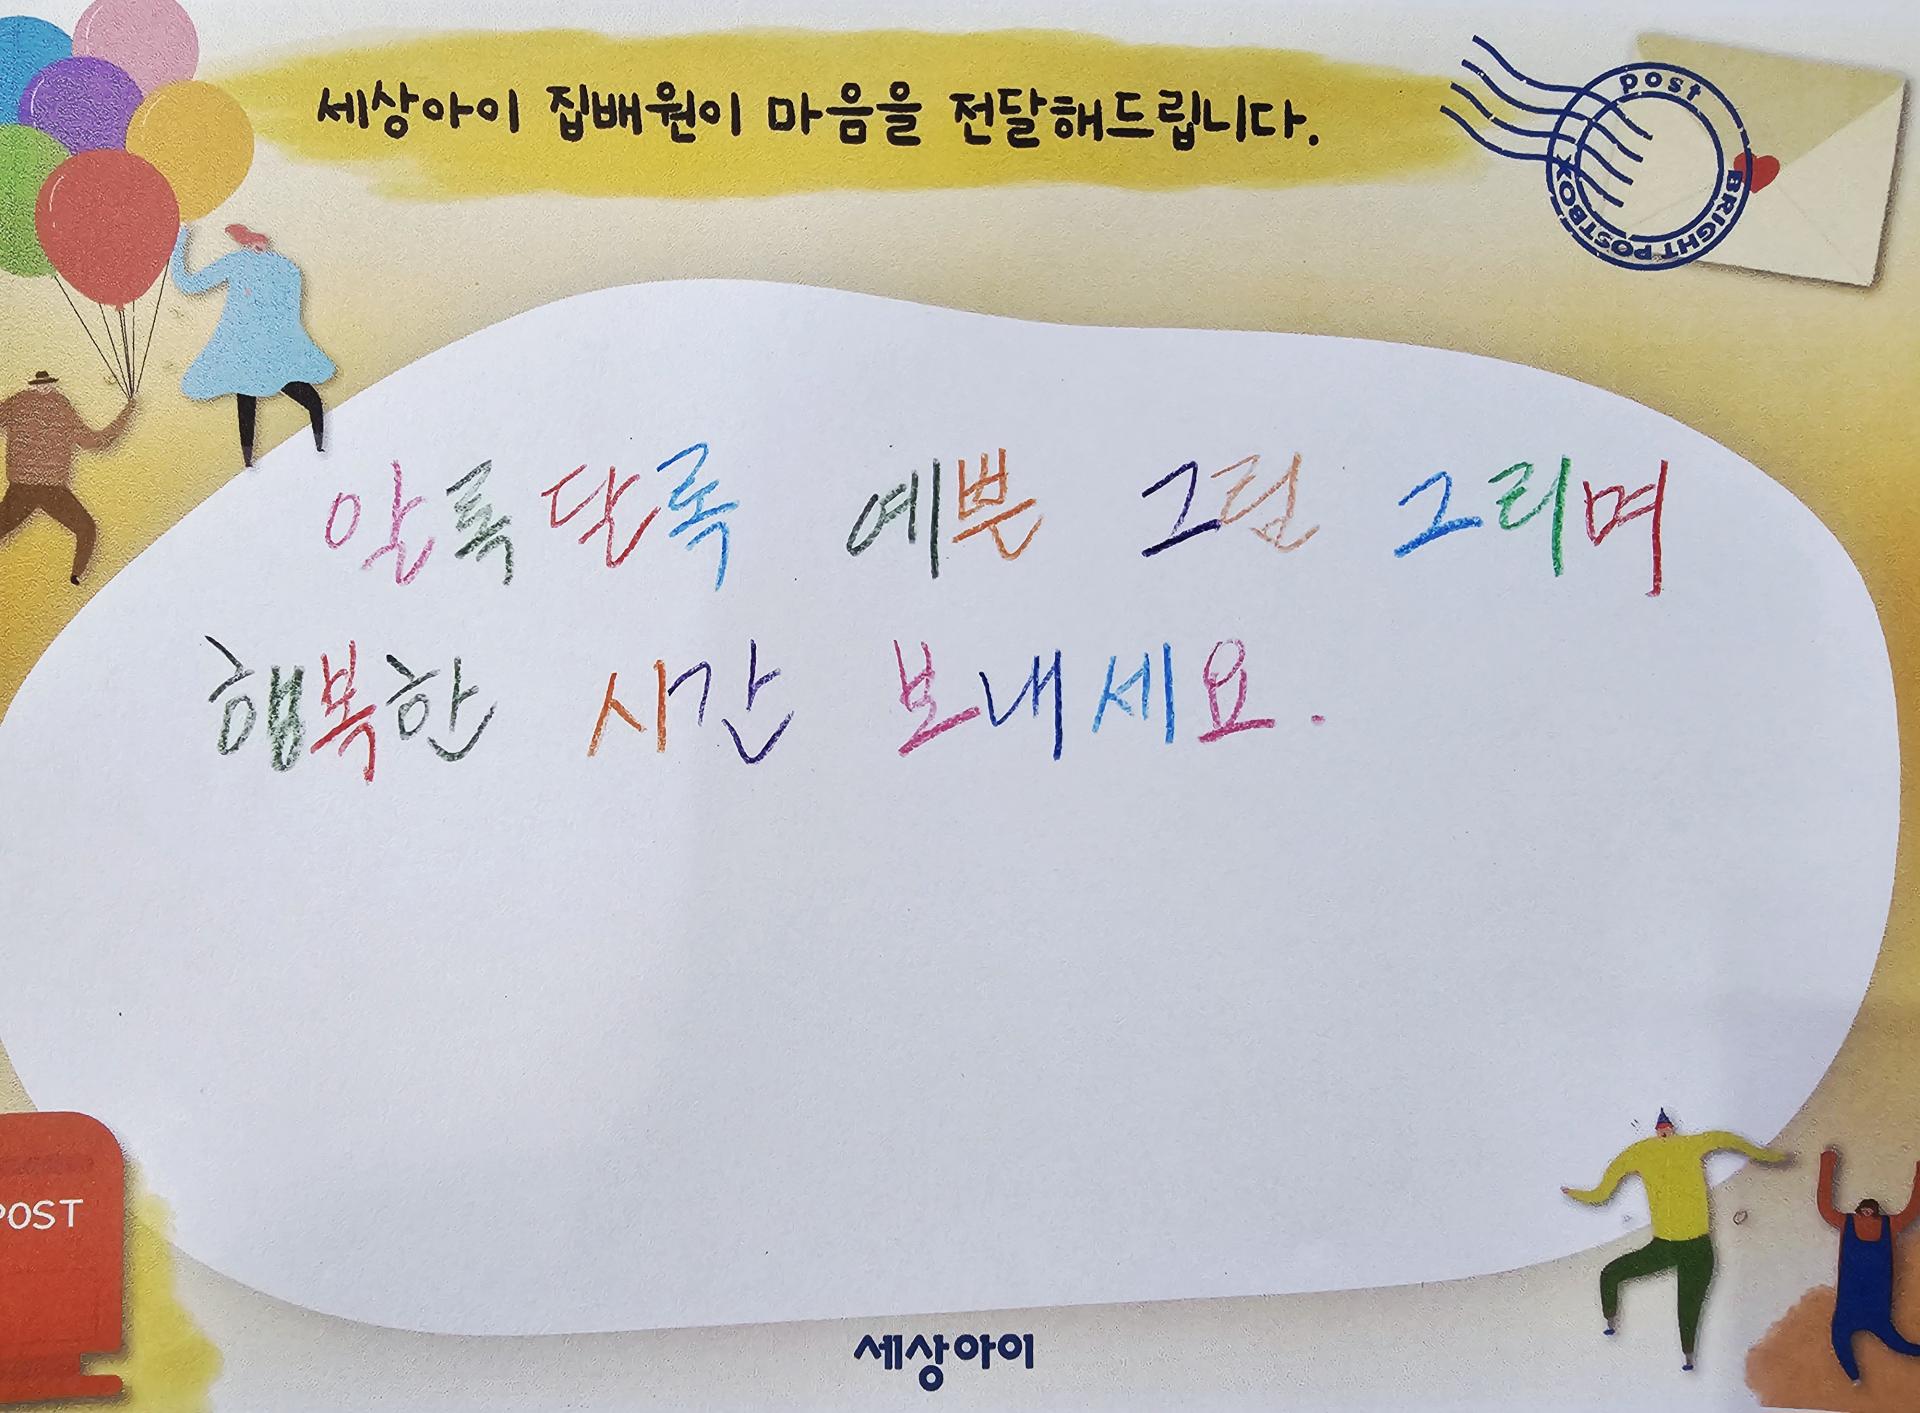 세상아이 집배원이 마음을 전달해드립니다.
post
BRIGHT POSTBOX
알록달록 예쁜 그림 그리며
행복한 시간 보내세요.
POST
세상아이